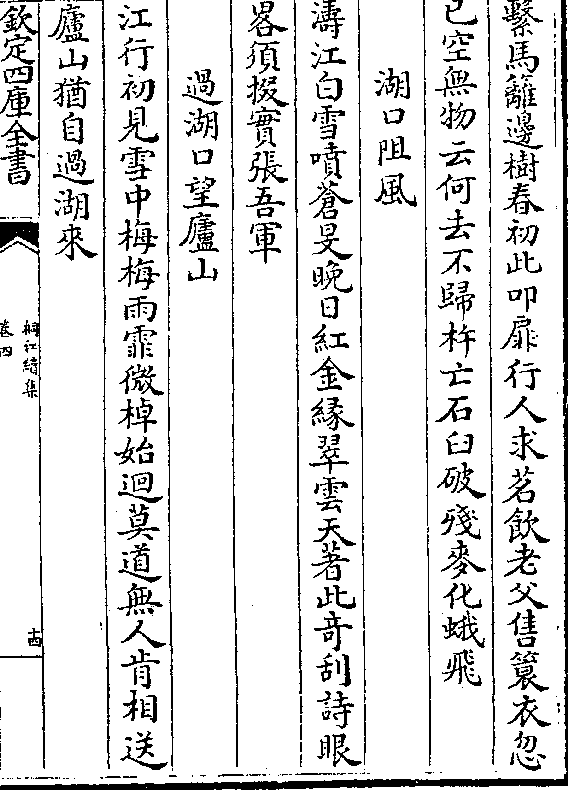 繫馬籬邊樹春初此叩扉行人求茗飲老父售簑衣忽
已空無物云何去不歸杵亡石臼破殘麥化蛾飛
湖口阻風
濤江白雪噴蒼旻晚日紅金緣翠雲天著此竒刮詩眼
畧須掇實張吾軍
過湖口望廬山
江行初見雪中梅梅雨霏微棹始迴莫道無人肯相送
廬山猶自過湖來
欽定四庫全書
桐江續集
卷四
十四